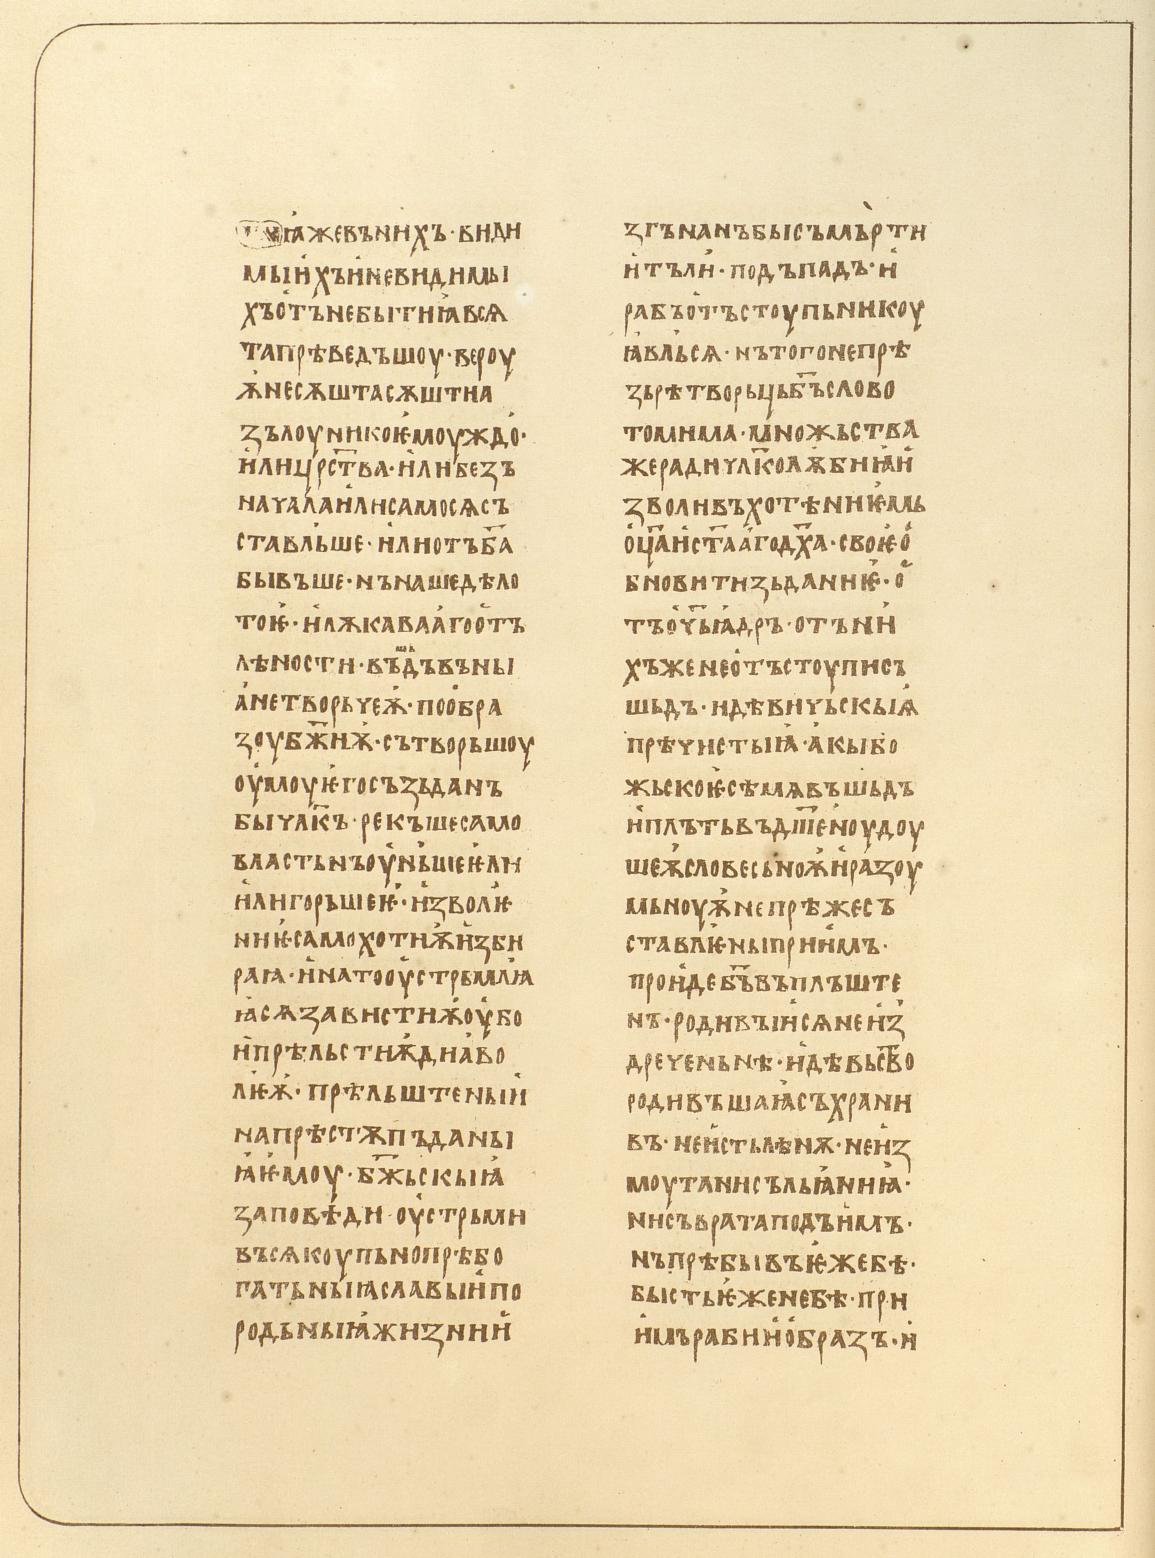 ꙗжевънихъ·види
мыи҆хъи҆невидимы
хъо҆тънебытиꙗ҆вся
тапрѣведъшоу·вероу
ѫ҆несѫштасѫштиꙗ
зълоуникоѥ҆моуждо·
и҆лицр҃ства·и҆либезъ
начала҆и҆лисамосѧсъ
ставльше·и҆лиотъба҃
бывъше·нънашедѣло
тоѥ҆·и҆лѫкаваа҆гоо҆тъ
лѣности·въдъшьвъны
а҆нетворьчеѭ·поо҆бра
зоубж҃иѭ·сътворьшоу
оу҆моуѥ҆госъзьданъ
бычлк҃ъ·рекъшесамо
властьнъоу҆ньшеѥ҆ли
и҆лигорьшеѥ҆·и҆зволѥ
ниѥ҆самохотиѭ҆и҆зби
раꙗ·и҆натооу҆стрьмлꙗ
ꙗ҆сѧзавистиѭ҆оу҆бо
и҆прѣльстиѭ҆диа҆во
лѥѭ҆·прѣльштеныи҆
напрѣстѫпъданы
ꙗ҆ѥ҆моу·бж҃ьскыꙗ҆
заповѣди·оу҆стрьми
въсѧкоупьнопрѣбо
гатьныꙗславыи҆по
родьныꙗ҆жизнии҆
згънанъбысъмьрти
и҆тъли·подъпадъ·и҆
рабъо҆тъстоупьникоу
ꙗ҆вльсѧ·нътогонепрѣ
зьрѣтворьцьбъ҃слово
томима·множьства
жерадичлк҃олѫбиꙗ҆и҆
зволивъхотѣниѥ҆мь
о҆ца҃и҆ст҃аа҆годх҃а·своѥ҆о҆
бновитизьданиѥ·о҆
тъо҆ч҃ьꙗ҆дръ·отъни
хъженео҆тъстоуписъ
шьдъ·идѣвичьскыѧ҆
прѣчистыꙗ҆·а҆кыбо
жьскоѥ҆сѣмѧвъшьдъ
и҆плътьвъдш҃еноудоу
шеѭ҆словесьноѭ҆и҆разоу
мьноуѭ҆непрѣжесъ
ставлѥ҆ныприи҆мъ·
прои҆дебъ҃въплъште
нъ·родивъыи҆сѧнеи҆з
дреченьнѣ·и҆дѣвьств҃о
родивъшаꙗ҆съхрани
въ·неи҆стьлѣнѫ·неи҆з
моутанисъльꙗ҆ниꙗ҆·
нисъвратаподъи҆мъ·
нъпрѣбывъѥ҆жебѣ·
быстьѥ҆женебѣ·при
и҆мърабии҆о҆бразъ·и